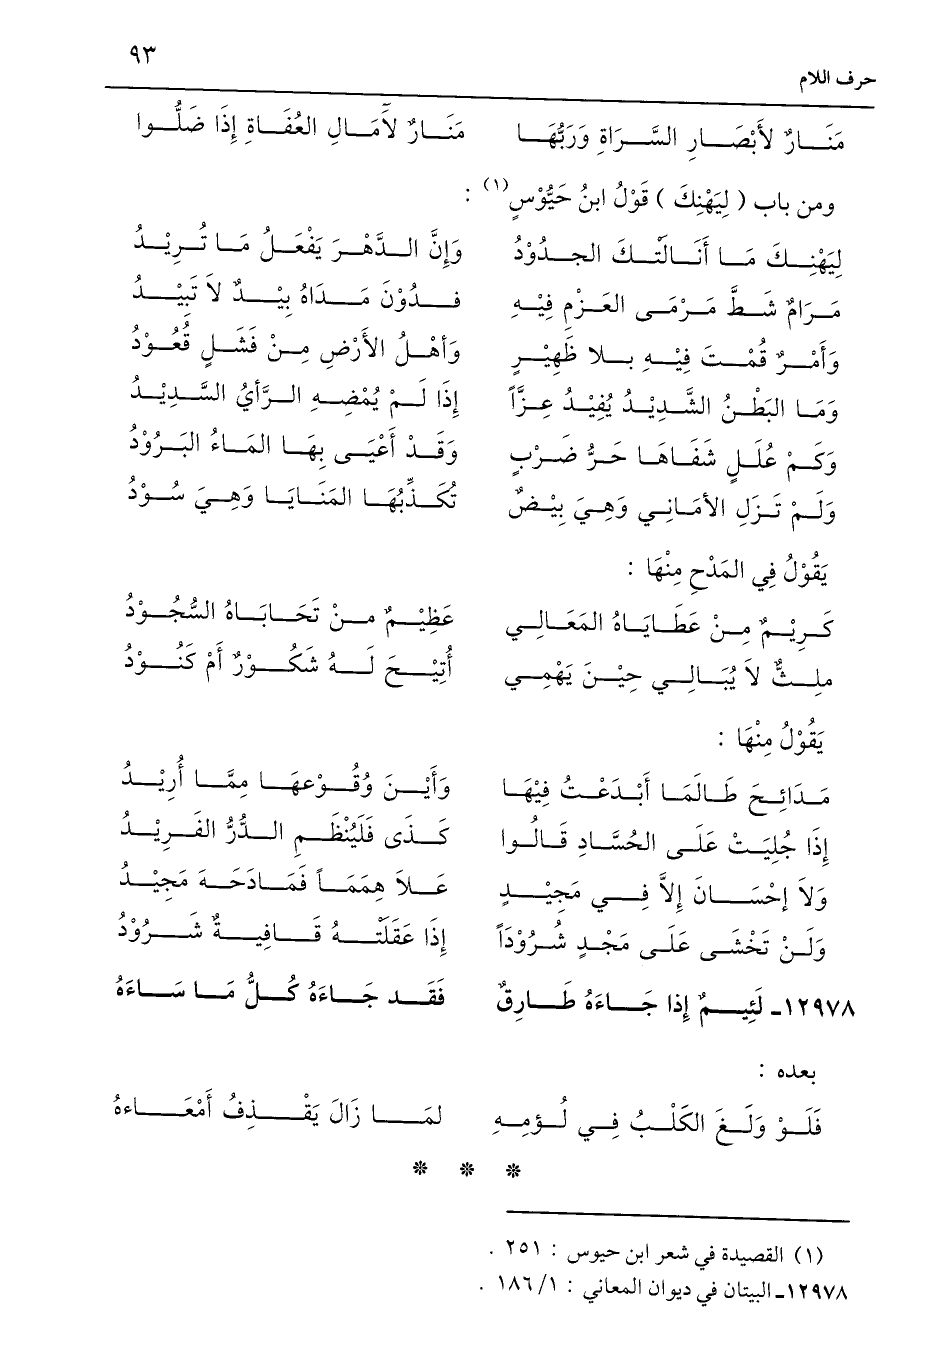 ٩٣
حرف اللام
مَنَــارٌ لأَبْصَــارِ السَّــرَاةِ وَرَبُّهَــا مَنَــارٌ لآمَــالِ العُفَــاةِ إِذَا ضَلُّــوا
ومن باب ( لِيَهْنِكَ ) قَوْلُ ابنُ حَيُّوْسٍ(١) :
لِيَهْنِــكَ مَــا أَنَــالَتْــكَ الجــدُوْدُ وَإِنَّ الــدَّهْــرَ يَفْعَــلُ مَــا تُــرِيْــدُ
مَــرَامٌ شَــطَّ مَــرْمَــى العَــزْمِ فِيْــهِ فَــدُوْنَ مَــدَاهُ بِيْــدٌ لاَ تَبِيْــدُ
وَأَمْــرٌ قُمْــتَ فِيْــهِ بِــلا ظَهِيْــرٍ وَأَهْــلُ الأَرْضِ مِــنْ فَشَــلٍ قُعُــوْدُ
وَمَــا البَطْــنُ الشَّــدِيْــدُ يُفِيْــدُ عِــزَّاً إِذَا لَــمْ يُمْضِــهِ الــرَّأيُ السَّــدِيْــدُ
وَكَــمْ غُلَــلٍ شَفَــاهَــا حَــرُّ ضَــرْبٍ وَقَــدْ أَعْيَــى بِهَــا المَــاءُ البَــرُوْدُ
وَلَــمْ تَــزَلِ الأَمَــانِــي وَهِــيَ بِيْــضٌ تُكَــذِّبُهَــا المَنَــايَــا وَهِــيَ سُــوْدُ
يَقُوْلُ فِي المَدْحِ مِنْهَا :
كَــرِيْــمٌ مِــنْ عَطَــايَــاهُ المَعَــالِــي عَظِيْــمٌ مِــنْ تَحَــايَــاهُ السُّجُــوْدُ
مِلــثٌّ لاَ يُبَــالِــي حِيْــنَ يَهْمِــي أُتِيْــحَ لَــهُ شَكُــوْرٌ أَمْ كَنُــوْدُ
يَقُوْلُ مِنْهَا :
مَــدَائِــحَ طَــالَمَــا أَبْــدَعْــتُ فِيْهَــا وَأَيْــنَ وُقُــوْعهَــا مِمَّــا أُرِيْــدُ
إِذَا جُلِيَــتْ عَلَــى الحُسَّــادِ قَــالُــوا كَــذَى فَلْيُنْظَــمِ الــدُّرُّ الفَــرِيْــدُ
وَلاَ إِحْسَــانَ إِلاَّ فِــي مَجِيْــدٍ عَــلاَ هِمَمَــاً فَمَــادَحَــهُ مَجِيْــدُ
وَلَــنْ تَخْشَــى عَلَــى مَجْــدٍ شُــرُوْدَاً إِذَا عَقَلَتْــهُ قَــافِيَــةٌ شَــرُوْدُ
١٢٩٧٨ـ لَئِيــمٌ إِذا جَــاءَهُ طَــارِقٌ فَقَــد جَــاءَهُ كُــلُّ مَــا سَــاءَهُ
بعده :
فَلَــوْ وَلَــغَ الكَلْــبُ فِــي لُــؤمِــهِ لمَــا زَالَ يَقْــذِفُ أَمْعَــاءهُ
* * *
(١) القصيدة في شعر ابن حيوس : ٢٥١ .
١٢٩٧٨ـ البيتان في ديوان المعاني : ١/ ١٨٦ .